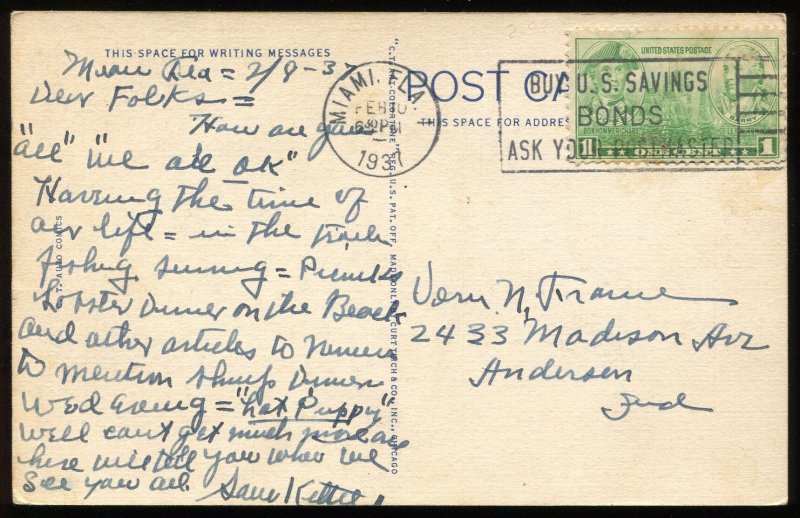 THIS SPACE FOR WRITING MESSAGES
Miami Fla = 2/9-37
Dear Folks =
How are you
"all" "we all OK"
Haveing the time of
our life = in the
fishing, = Picnics
Lobster Dinner on the Beach
and other articles to
to mention Shrimp Dinner
Wed Eving = "hot Puppy"
Well cant get much more on
here will tell you when we
See you all. Sam Kittle
C. T. AUTO COMICS
"C.T. ART-COLORTONE" REG. U.S. PAT. OFF. MADE ONLY BY CURT TEICH & CO., INC., CHICAGO
POST CA
THIS SPACE FOR ADDRES
MIAMI, FLA.
FEB 10
6 PM
1937
BUY U.S. SAVINGS
BONDS
ASK YOUR POSTMASTER
UNITED STATES POSTAGE
BONHOMME RICHARD
BARRY
1 ONE CENT 1
Vern N. Frame
2433 Madison Ave
Anderson
Ind